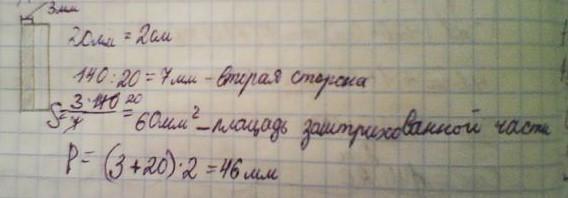 3мм
20мм = 2см
140 : 20 = 7мм - вторая сторона
S = 3·140 20 / 7 = 60мм² - площадь заштрихованной части
P = (3+20)·2 = 46мм